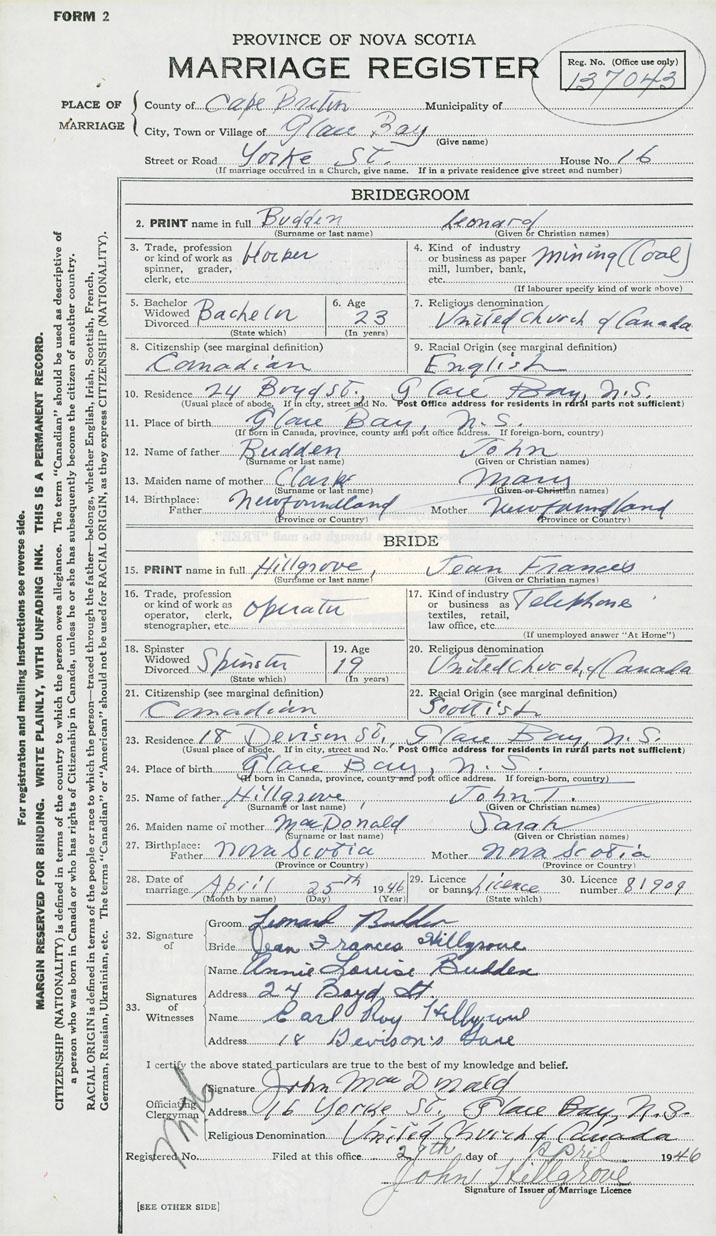 FORM 2
PROVINCE OF NOVA SCOTIA
MARRIAGE REGISTER
Reg. No. (Office use only)
137043
PLACE OF MARRIAGE
County of Cape Breton Municipality of
City, Town or Village of Glace Bay
(Give name)
Street or Road Yorke St. House No. 16
(If marriage occurred in a Church, give name. If in a private residence give street and number)
BRIDEGROOM
2. PRINT name in full Budden Leonard
(Surname or last name) (Given or Christian names)
3. Trade, profession or kind of work as spinner, grader, clerk, etc.
4. Kind of industry or business as paper mill, lumber, bank, etc. Mining (Coal)
(If labourer specify kind of work above)
5. Bachelor Widowed Divorced Bachelor
(State which)
6. Age 23
(In years)
7. Religious denomination
United Church of Canada
8. Citizenship (see marginal definition)
Canadian
9. Racial Origin (see marginal definition)
English
10. Residence 24 Boyd St., Glace Bay, N.S.
(Usual place of abode. If in city, street and No. Post Office address for residents in rural parts not sufficient)
11. Place of birth Glace Bay, N.S.
(If born in Canada, province, county and post office address. If foreign-born, country)
12. Name of father Budden John
(Surname or last name) (Given or Christian names)
13. Maiden name of mother Clarke Mary
(Surname or last name) (Given or Christian names)
14. Birthplace: Father Newfoundland Mother Newfoundland
(Province or Country) (Province or Country)
BRIDE
15. PRINT name in full Hillgrove, Jean Frances
(Surname or last name) (Given or Christian names)
16. Trade, profession or kind of work as operator, clerk, stenographer, etc. Operator
17. Kind of industry or business as textiles, retail, law office, etc. Telephone
(If unemployed answer "At Home")
18. Spinster Widowed Divorced Spinster
(State which)
19. Age 19
(In years)
20. Religious denomination
United Church of Canada
21. Citizenship (see marginal definition)
Canadian
22. Racial Origin (see marginal definition)
Scottish
23. Residence 18 Devison St., Glace Bay, N.S.
(Usual place of abode. If in city, street and No. Post Office address for residents in rural parts not sufficient)
24. Place of birth Glace Bay, N.S.
(If born in Canada, province, county and post office address. If foreign-born, country)
25. Name of father Hillgrove, John T.
(Surname or last name) (Given or Christian names)
26. Maiden name of mother MacDonald Sarah
(Surname or last name) (Given or Christian names)
27. Birthplace: Father Nova Scotia Mother Nova Scotia
(Province or Country) (Province or Country)
28. Date of marriage April 25th 1946
(Month by name) (Day) (Year)
29. Licence or banns Licence
(State which)
30. Licence number 81909
32. Signature of
Groom Leonard Budden
Bride Jean Frances Hillgrove
33. Signatures of Witnesses
Name Annie Louise Budden
Address 24 Boyd St.
Name Earl Roy Hillgrove
Address 18 Devison's Lane
I certify the above stated particulars are true to the best of my knowledge and belief.
Officiating Clergyman
Signature John MacDonald
Address 16 Yorke St. Glace Bay, N.S.
Religious Denomination United Church of Canada
Registered No. Filed at this office 29th day of April 1946
John Hillgrove
Signature of Issuer of Marriage Licence
[SEE OTHER SIDE]
For registration and mailing instructions see reverse side.
MARGIN RESERVED FOR BINDING. WRITE PLAINLY, WITH UNFADING INK. THIS IS A PERMANENT RECORD.
CITIZENSHIP (NATIONALITY) is defined in terms of the country to which the person owes allegiance. The term "Canadian" should be used as descriptive of
a person who was born in Canada or who has rights of Citizenship in Canada, unless he or she has subsequently become the citizen of another country.
RACIAL ORIGIN is defined in terms of the people or race to which the person—traced through the father—belongs, whether English, Irish, Scottish, French,
German, Russian, Ukrainian, etc. The terms "Canadian" or "American" should not be used for RACIAL ORIGIN, as they express CITIZENSHIP (NATIONALITY).